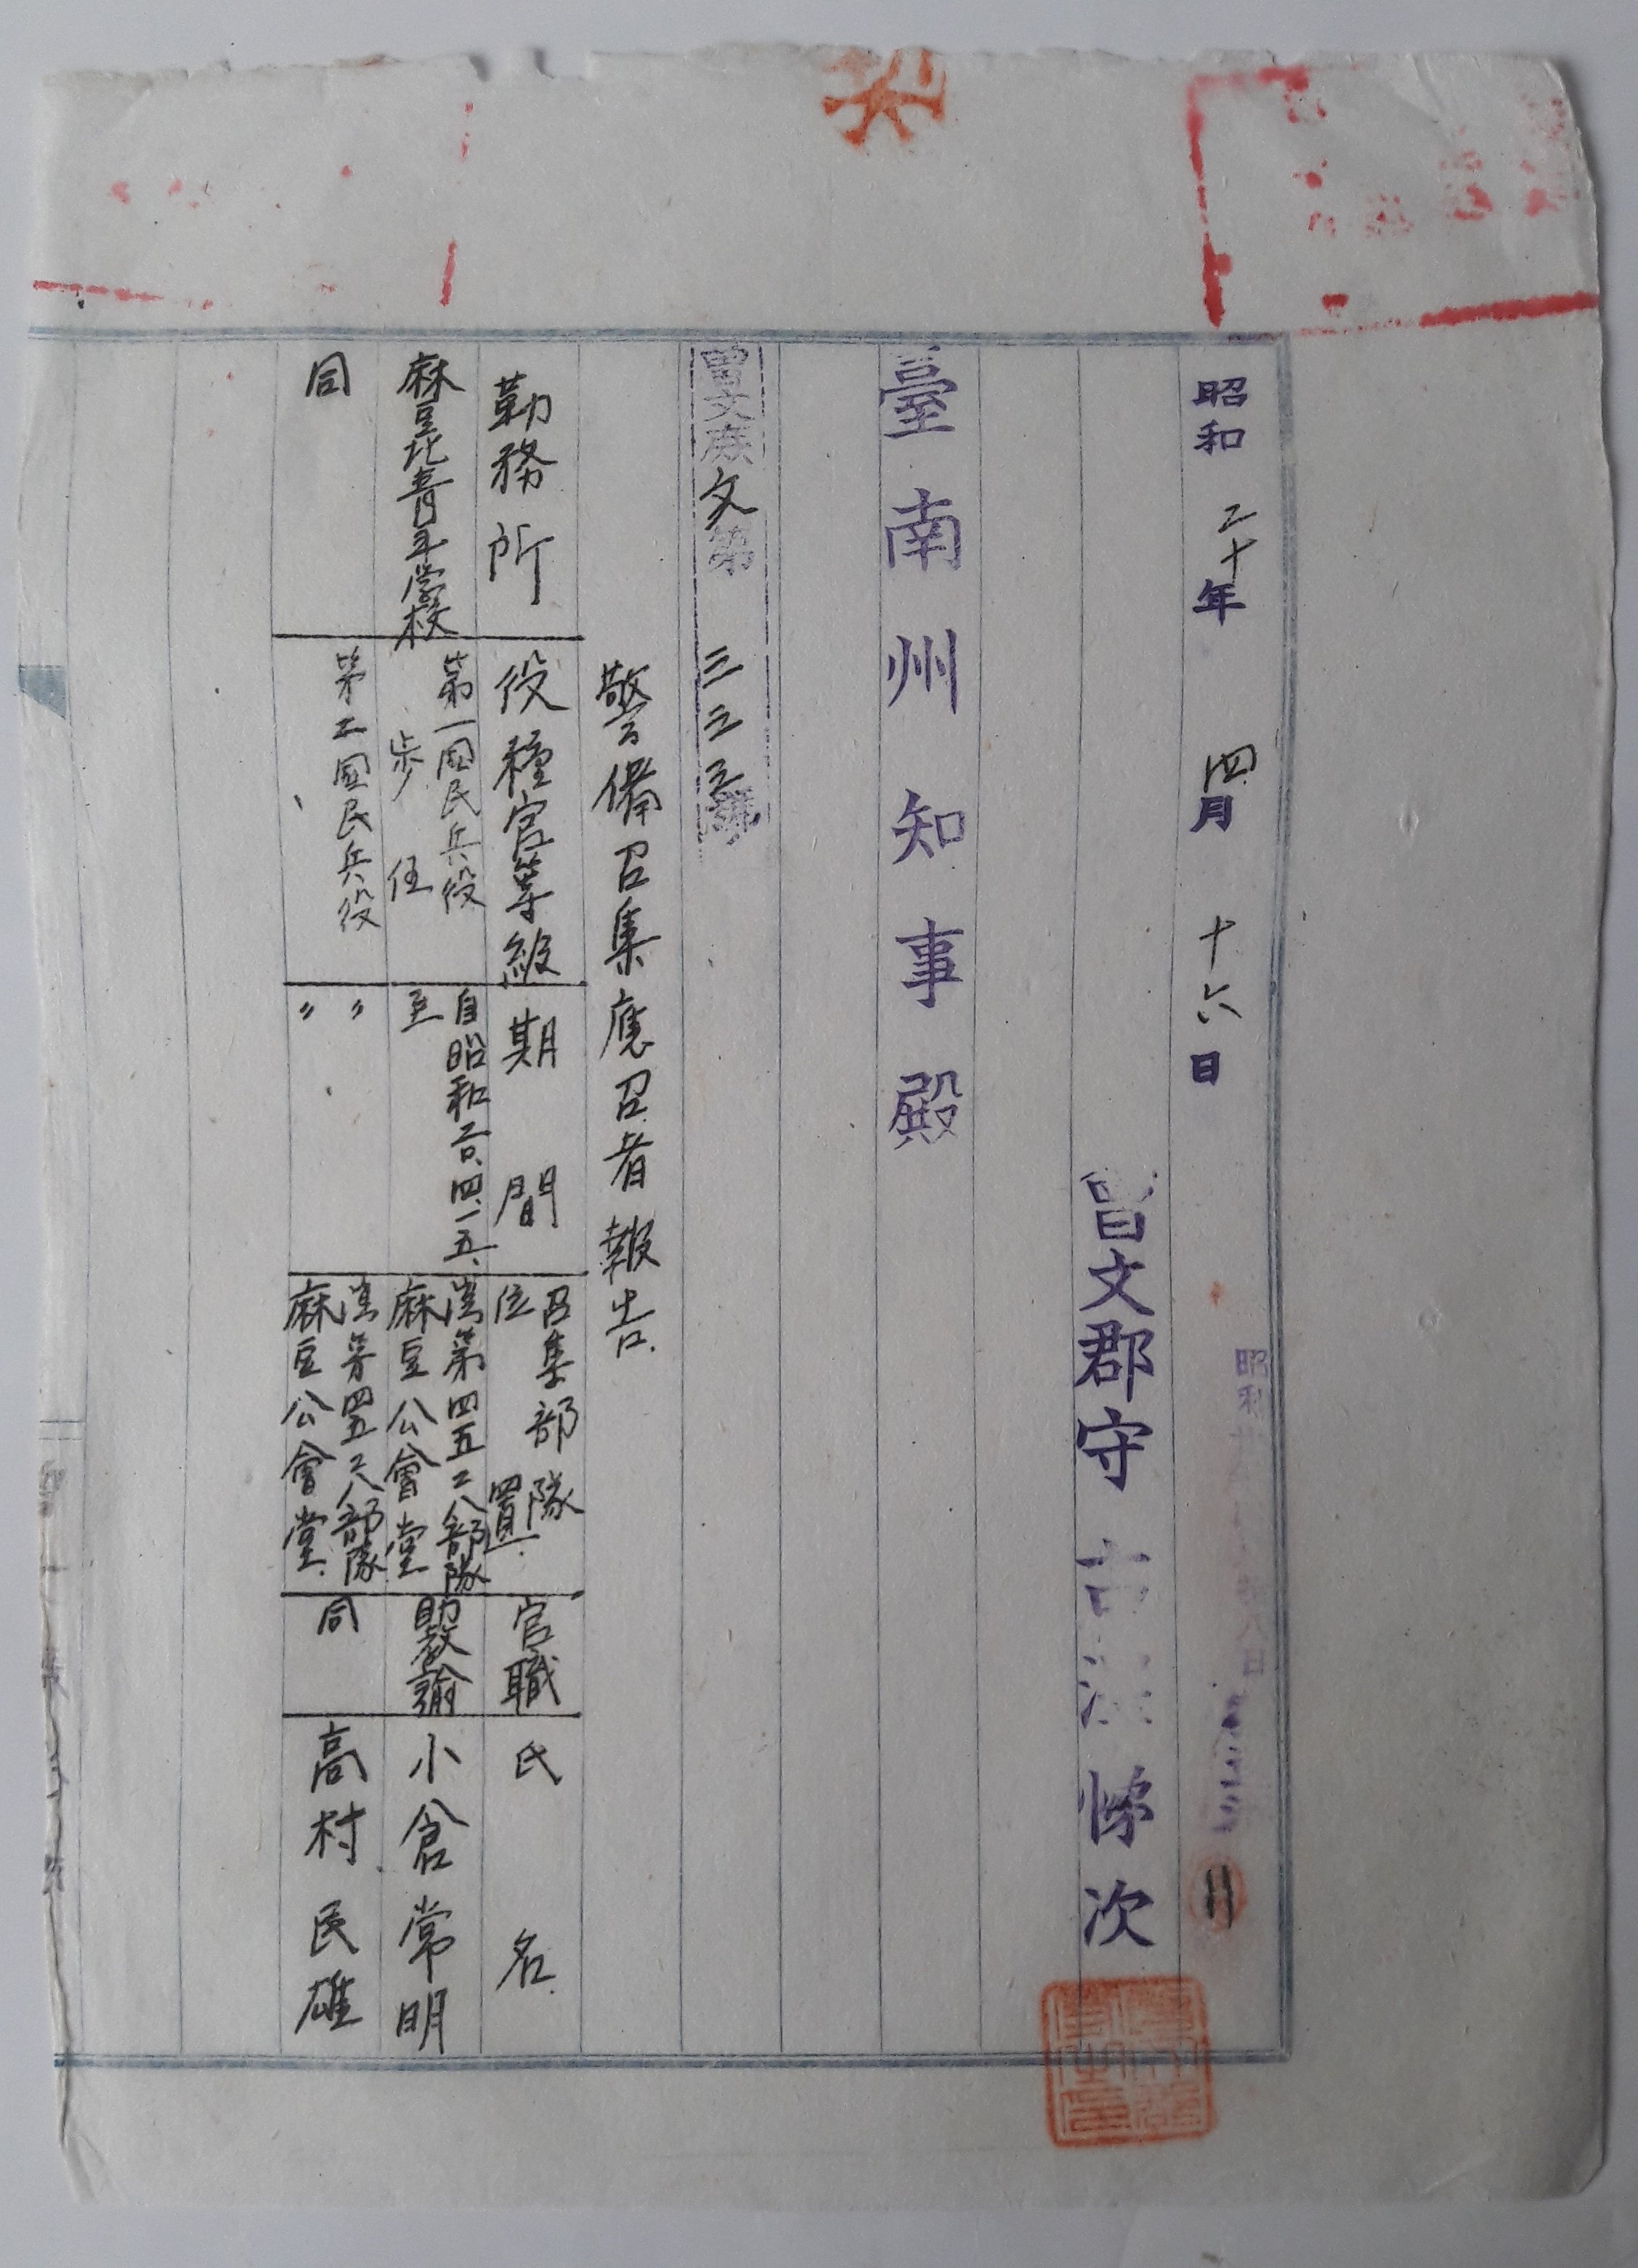 昭和二十年四月十六日
曾文郡守 悌次
臺南州知事殿
曾文庶文第三三三號
警備召集應召者報告
勤務所
役種官等級
期間
召集部隊
位置
官職
氏名
麻豆北青年學校
第一國民兵役
步伍
自昭和二〇、四、一五、
至
湾第四五二八部隊
麻豆公會堂
助教諭
小倉常明
同
第二國民兵役
〃
〃
湾第四五二八部隊
麻豆公會堂
同
高村民雄